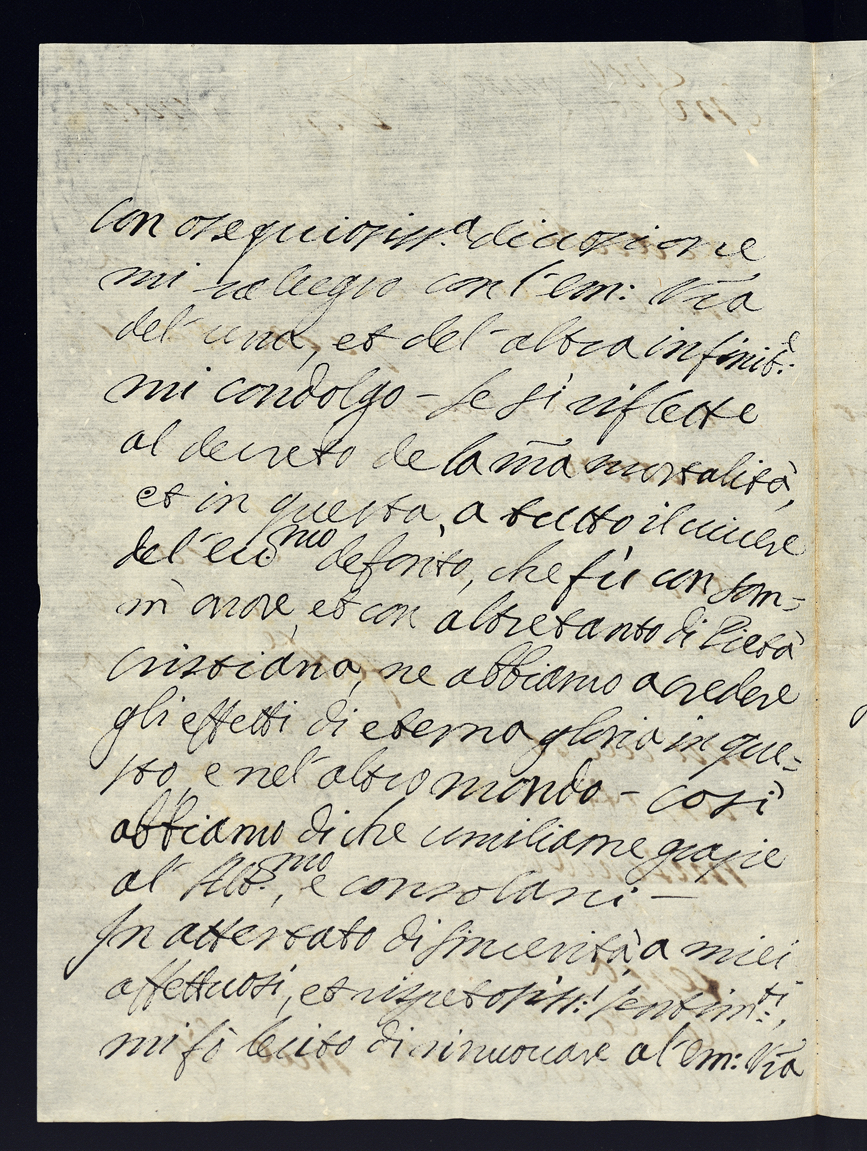 con osequiosiss.ª diuosione
mi ralegro con l'em: Vrã
del' una, et del' altra infinit.e
mi condolgo - Se si riflette
al decreto de la mr̃a mortalità,
et in questa, a tutto il uiuere
del' ecc.mo defonto, che fù con som=
m' onore, et con altretanto di Pietà
cristiana, ne abbiamo a credere
gli effetti di eterna gloria in que=
sto, e nel' altro mondo - così
abbiamo di che umiliarne grazie
al' Alt.mo, e consolarci -
In attestato di sincerità, a miei
affettuosi, et rispetosiss.i sentim.ti,
mi fò lecito di rinuouare a l'em: Vrã